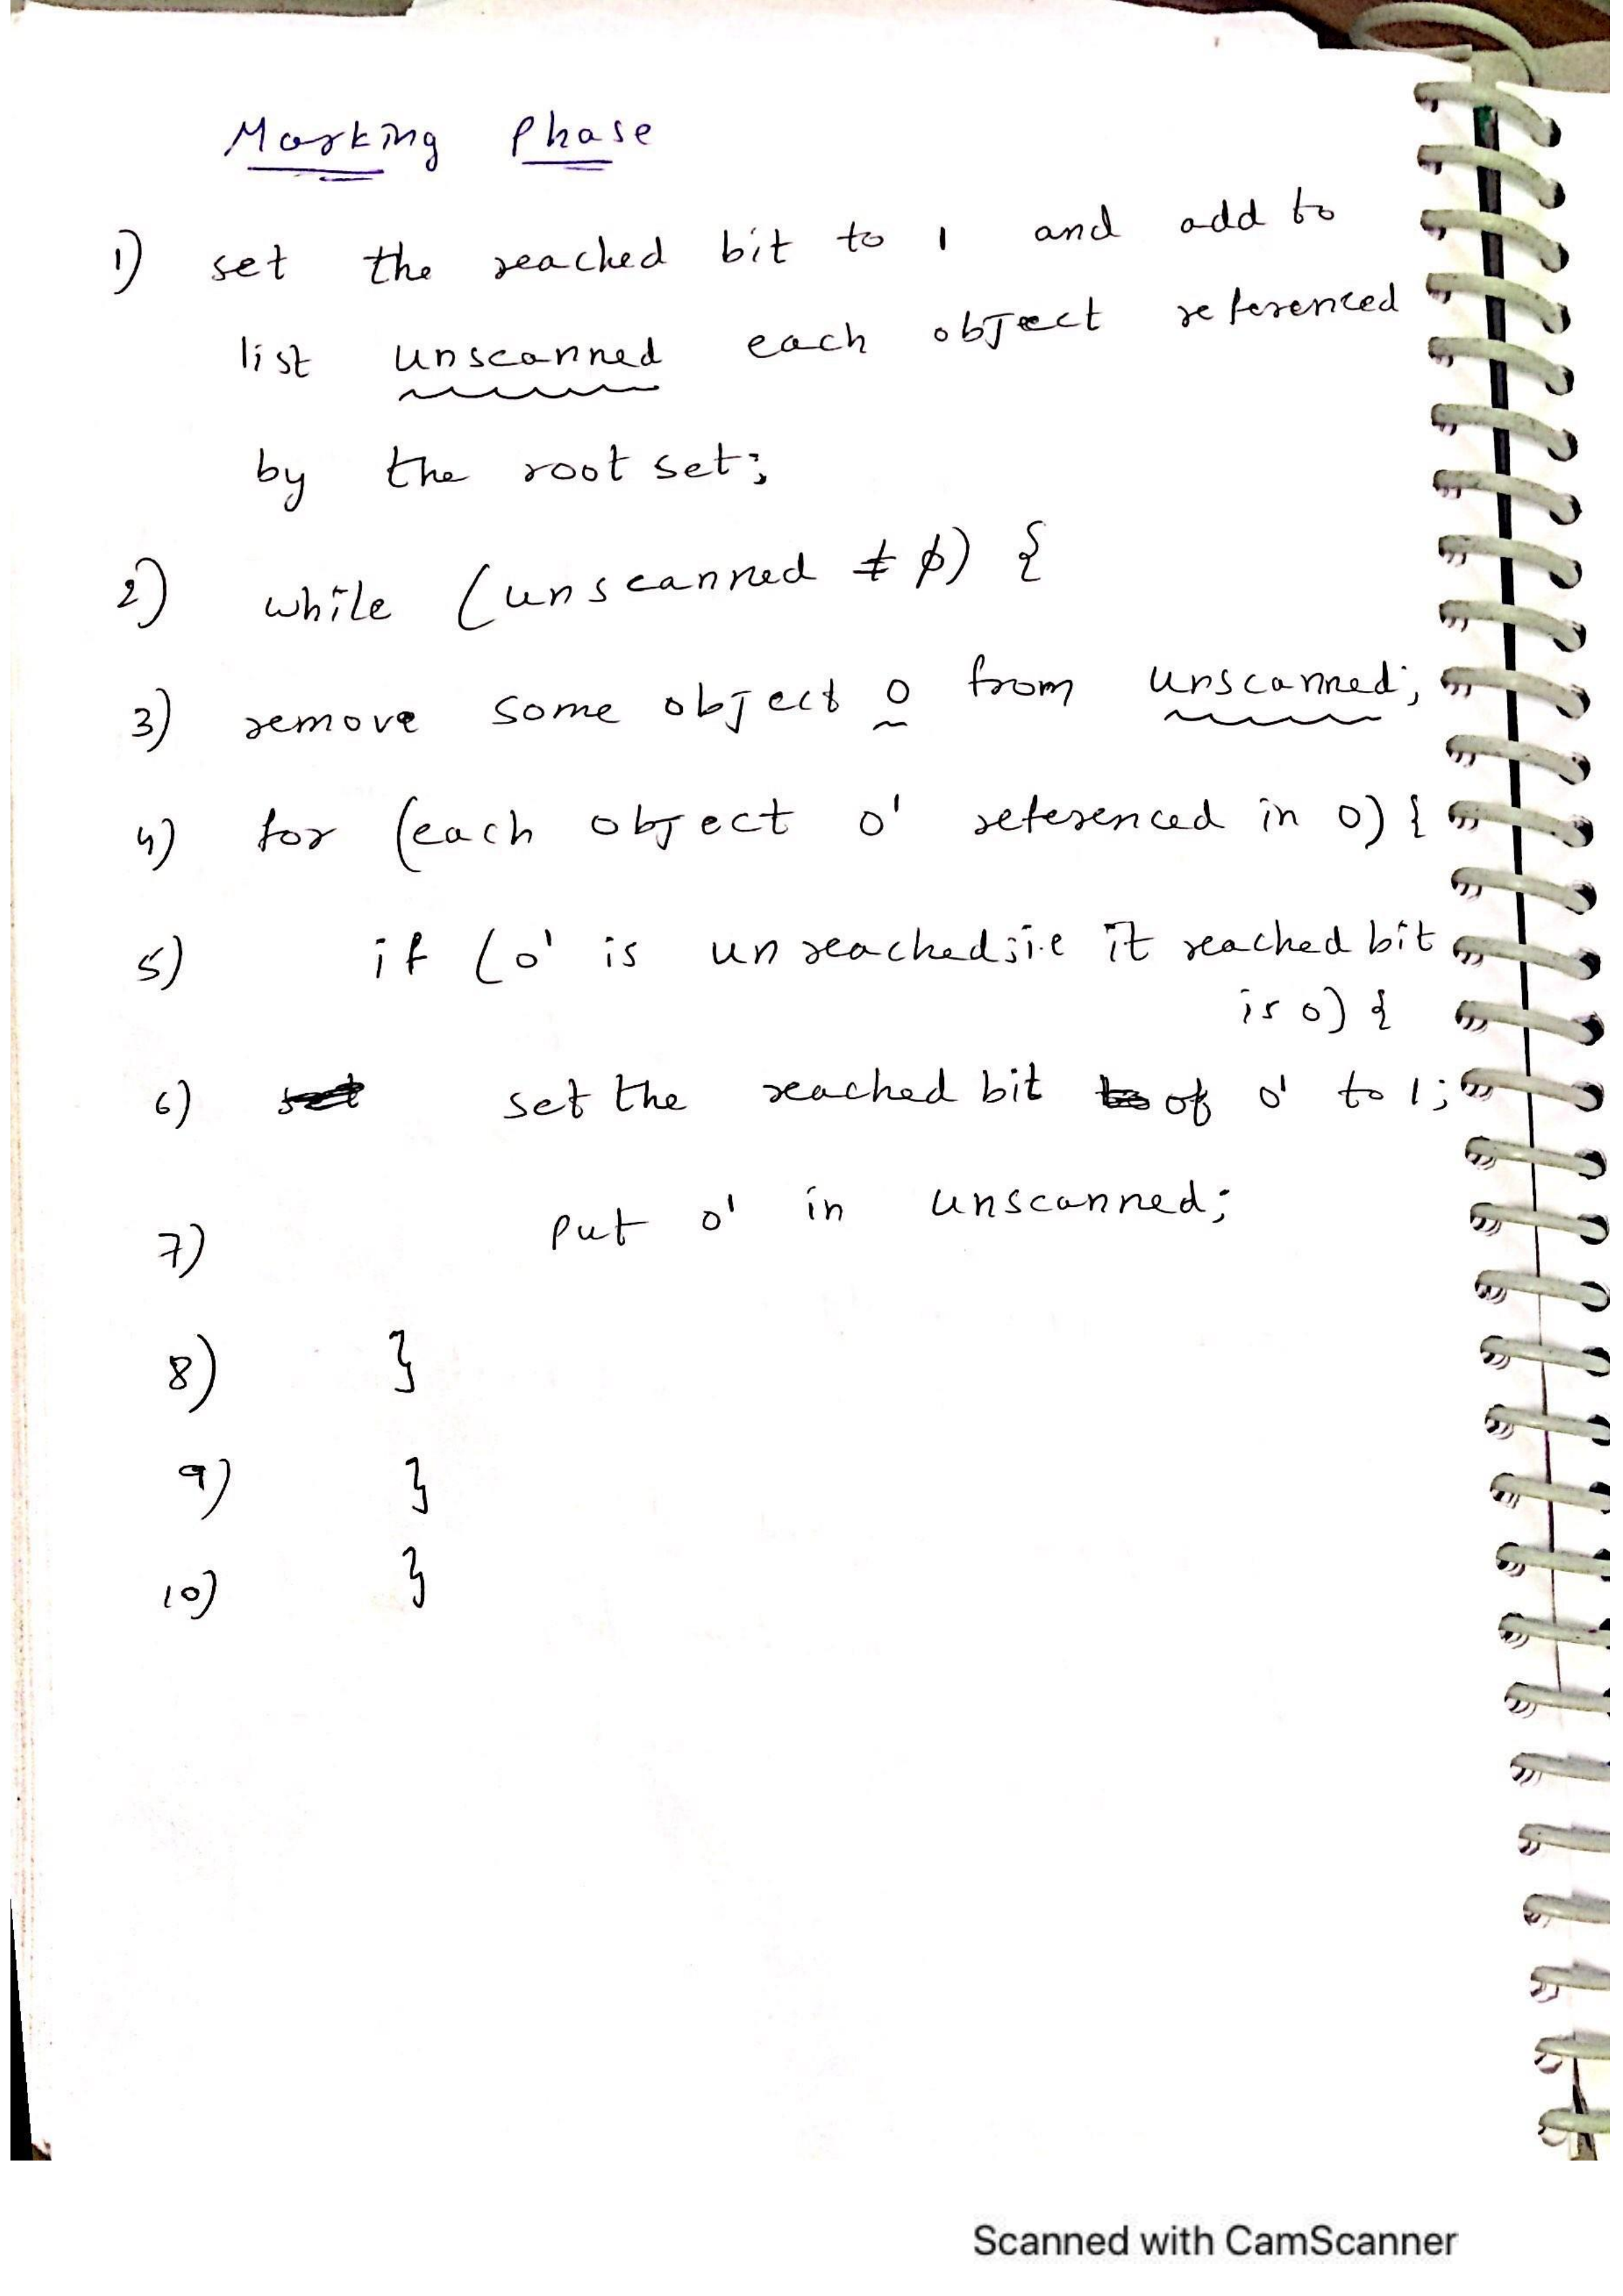 Marking Phase
1) set the reached bit to 1 and add to
list unscanned each object referenced
by the root set;
2) while (unscanned ≠ ϕ) {
3) remove some object o from unscanned;
4) for (each object o' referenced in o) {
5) if (o' is unreached; i.e it reached bit
is 0) {
6) set set the reached bit to of o' to 1;
7) put o' in unscanned;
8) }
9) }
10) }
Scanned with CamScanner